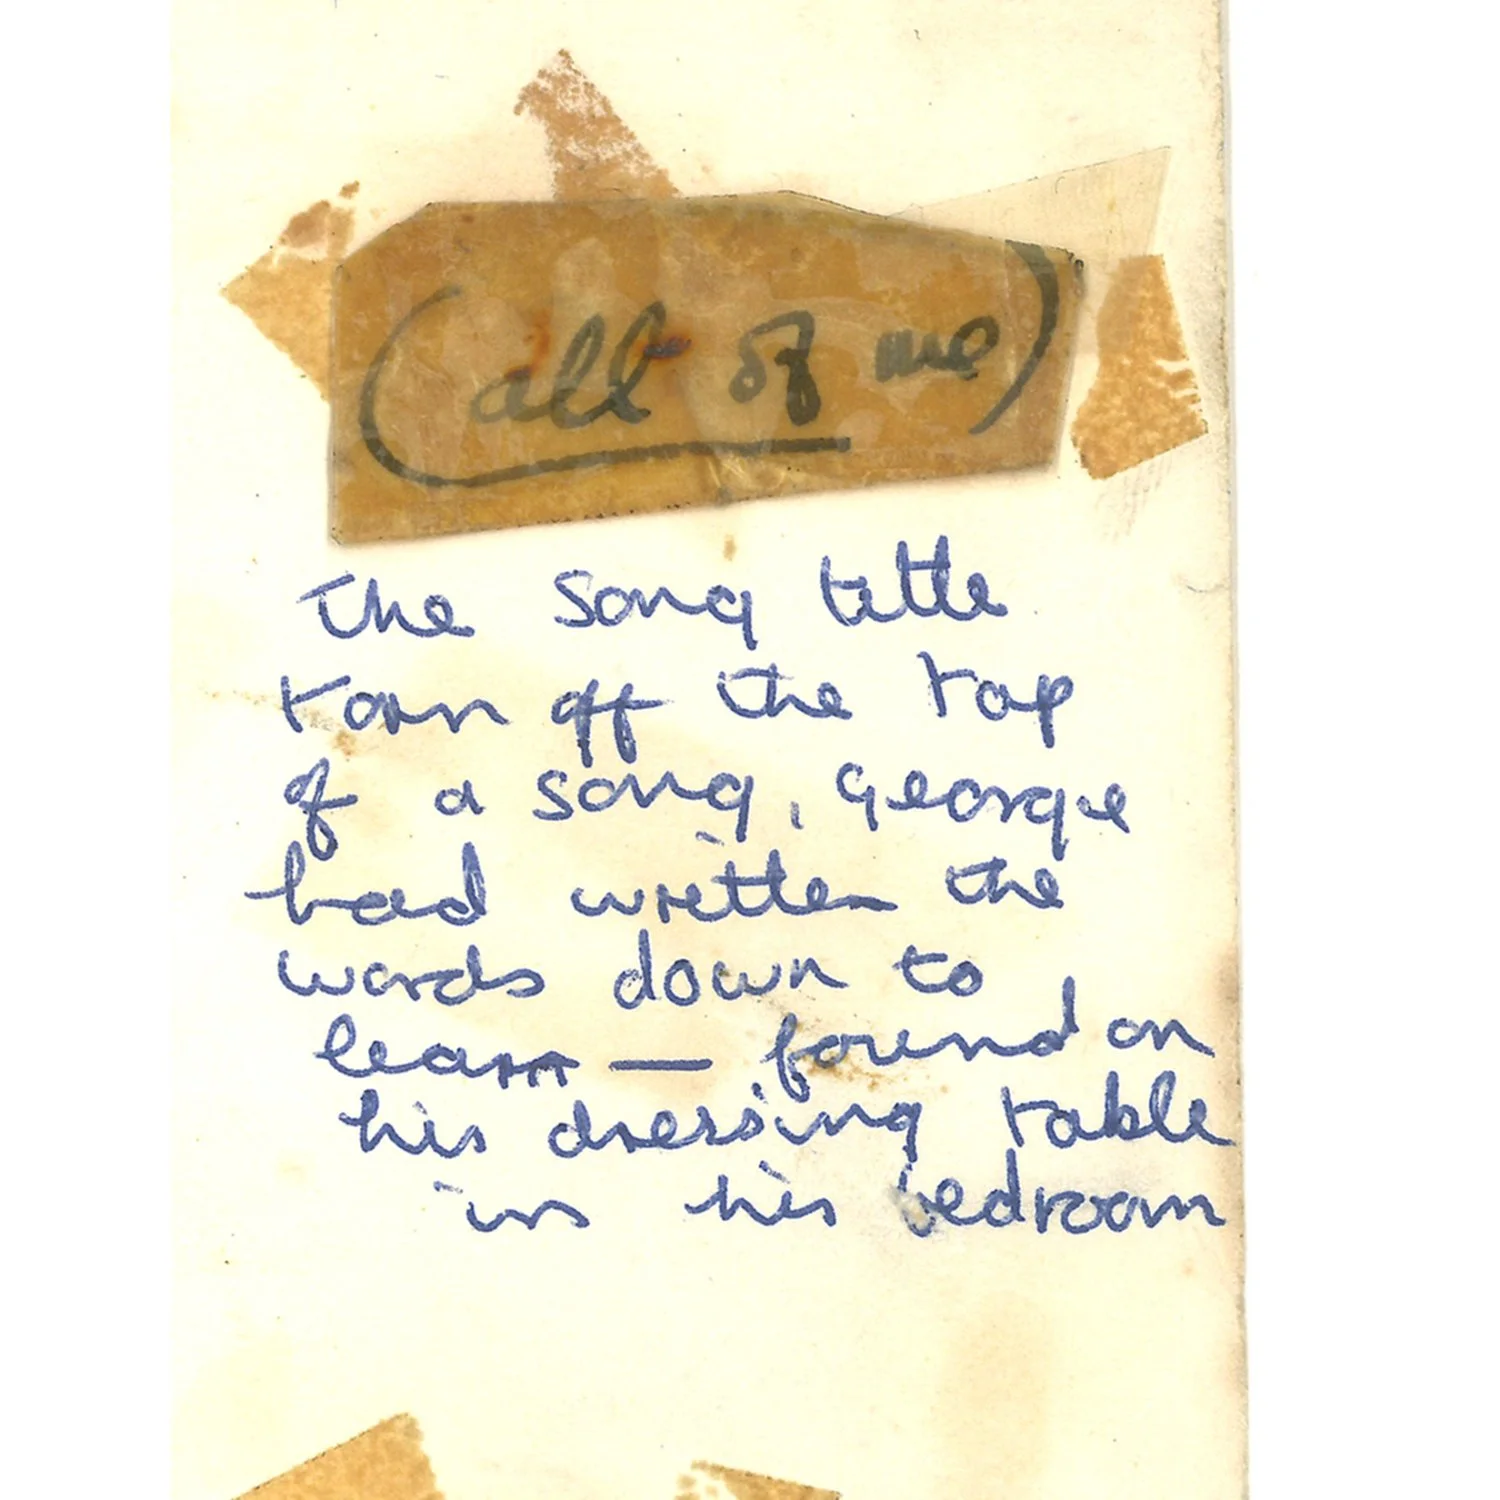 (all of me)
The Song title
torn off the top
of a song, George
had written the
words down to
learn — found on
his dressing table
in his bedroom